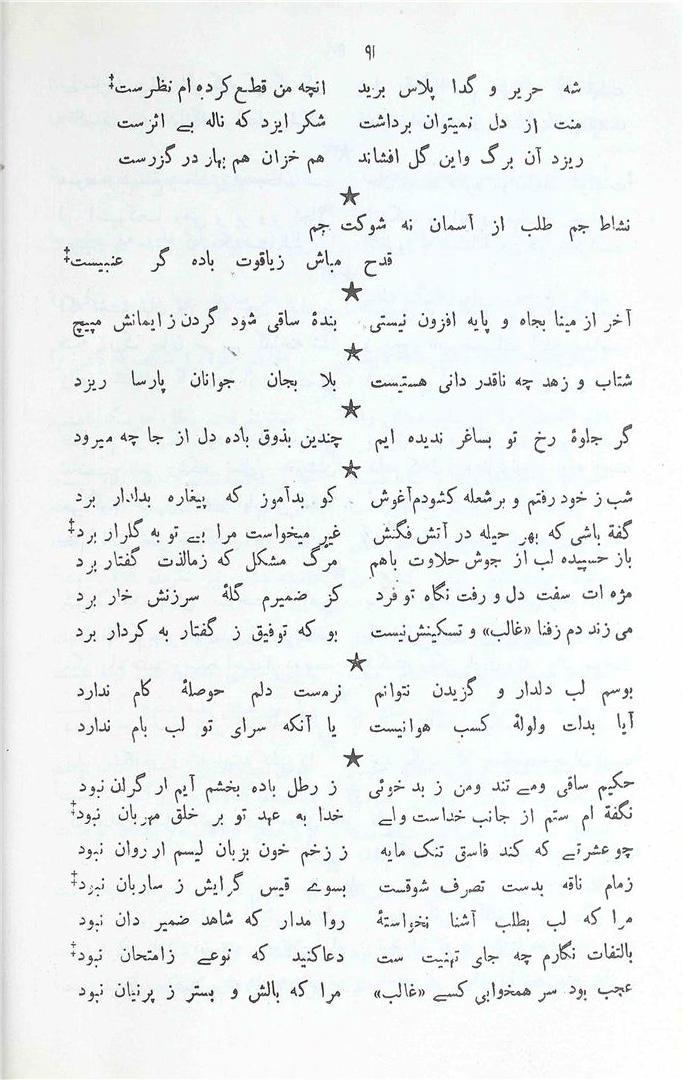 ۹۱
شه حریر و گدا پلاس برید انچه من قطع کرده ام نظرست‡
منت از دل نمیتوان برداشت شکر ایزد که ناله بے اثرست
ریزد آن برگ واین گل افشاند هم خزان هم بهار در گزرست
★
نشاط جم طلب از آسمان نه شوکت جم
قدح مباش زیاقوت باده گر عنبیست‡
★
آخر از مینا بجاه و پایه افزون نیستی بندهٔ ساقی شود گردن ز ایمانش مپیچ
★
شتاب و زهد چه ناقدر دانی هستیست بلا بجان جوانان پارسا ریزد
★
گر جلوهٔ رخ تو بساغر ندیده ایم چندین بذوق باده دل از جا چه میرود
★
شب ز خود رفتم و بر شعله کشودم آغوش کو بدآموز که پیغاره بدلدار برد
گفتهٔ باشی که بهر حیله در آتش فگنش غیر میخواست مرا بے تو به گلزار برد‡
باز حسپیده لب از جوش حلاوت باهم مرگ مشکل که زمالذت گفتار برد
مژه ات سفت دل و رفت نگاه تو فرد کز ضمیرم گلهٔ سرزنش خار برد
می زند دم زفنا «غالب» و تسکینش نیست بو که توفیق ز گفتار به کردار برد
★
بوسم لب دلدار و گزیدن نتوانم نرمست دلم حوصلهٔ کام ندارد
آیا بدات ولولهٔ کسب هوا نیست یا آنکه سرای تو لب بام ندارد
★
حکیم ساقی ومے تند ومن ز بد خوئی ز رطل باده بخشم آیم ار گران نبود
نگفته ام ستم از جانب خداست ولے خدا به عهد تو بر خلق مهربان نبود‡
چو عشرتے که کند فاسق تنک مایه ز زخم خون بزبان لیسم ار روان نبود
زمام ناقه بدست تصرف شوقست بسوے قیس گرایش ز ساربان نبود‡
مرا که لب بطلب آشنا نخواستهٔ روا مدار که شاهد ضمیر دان نبود
بالتفات نگارم چه جای تهنیت ست دعا کنید که نوعے ز امتحان نبود‡
عجب بود سر همخوابی کسے «غالب» مرا که بالش و بستر ز پرنیان نبود